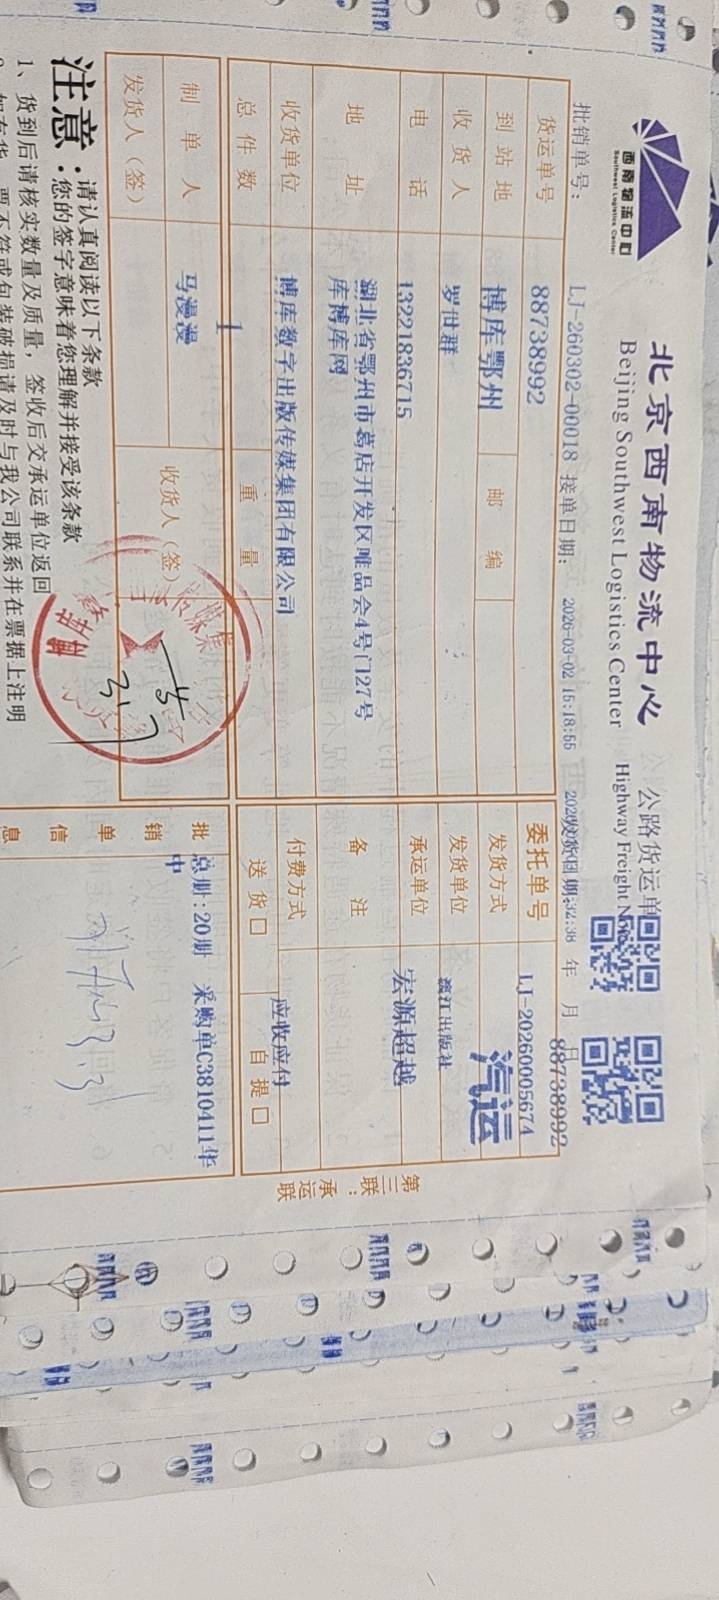 西南物流中心
Southwest Logistics Center
北京西南物流中心 公路货运单
Beijing Southwest Logistics Center Highway Freight Note
批销单号: LJ-260302-00018 接单日期: 2026-03-02 15:18:55 发货日期: 年 月 日
88738992
货运单号 88738992 委托单号 LJ-20260005674
到站地 博库鄂州 邮编 发货方式 汽运
收货人 罗世群 发货单位 漓江出版社
电话 13221836715 承运单位 宏源超越
地址 湖北省鄂州市葛店开发区唯品会4号门27号
库博库网 备注
收货单位 博库数字出版传媒集团有限公司 付费方式 应收应付
总件数 1 重量 送货□ 自提□
制单人 马漫漫 收货人(签) 批销单信息 总册:20册 采购单C3810411华
中
发货人(签)
第三联:承运联
注意: 请认真阅读以下条款
您的签字意味着您理解并接受该条款
1、货到后请核实数量及质量,签收后交承运单位返回
票不符或包装破损请及时与我公司联系并在票据上注明